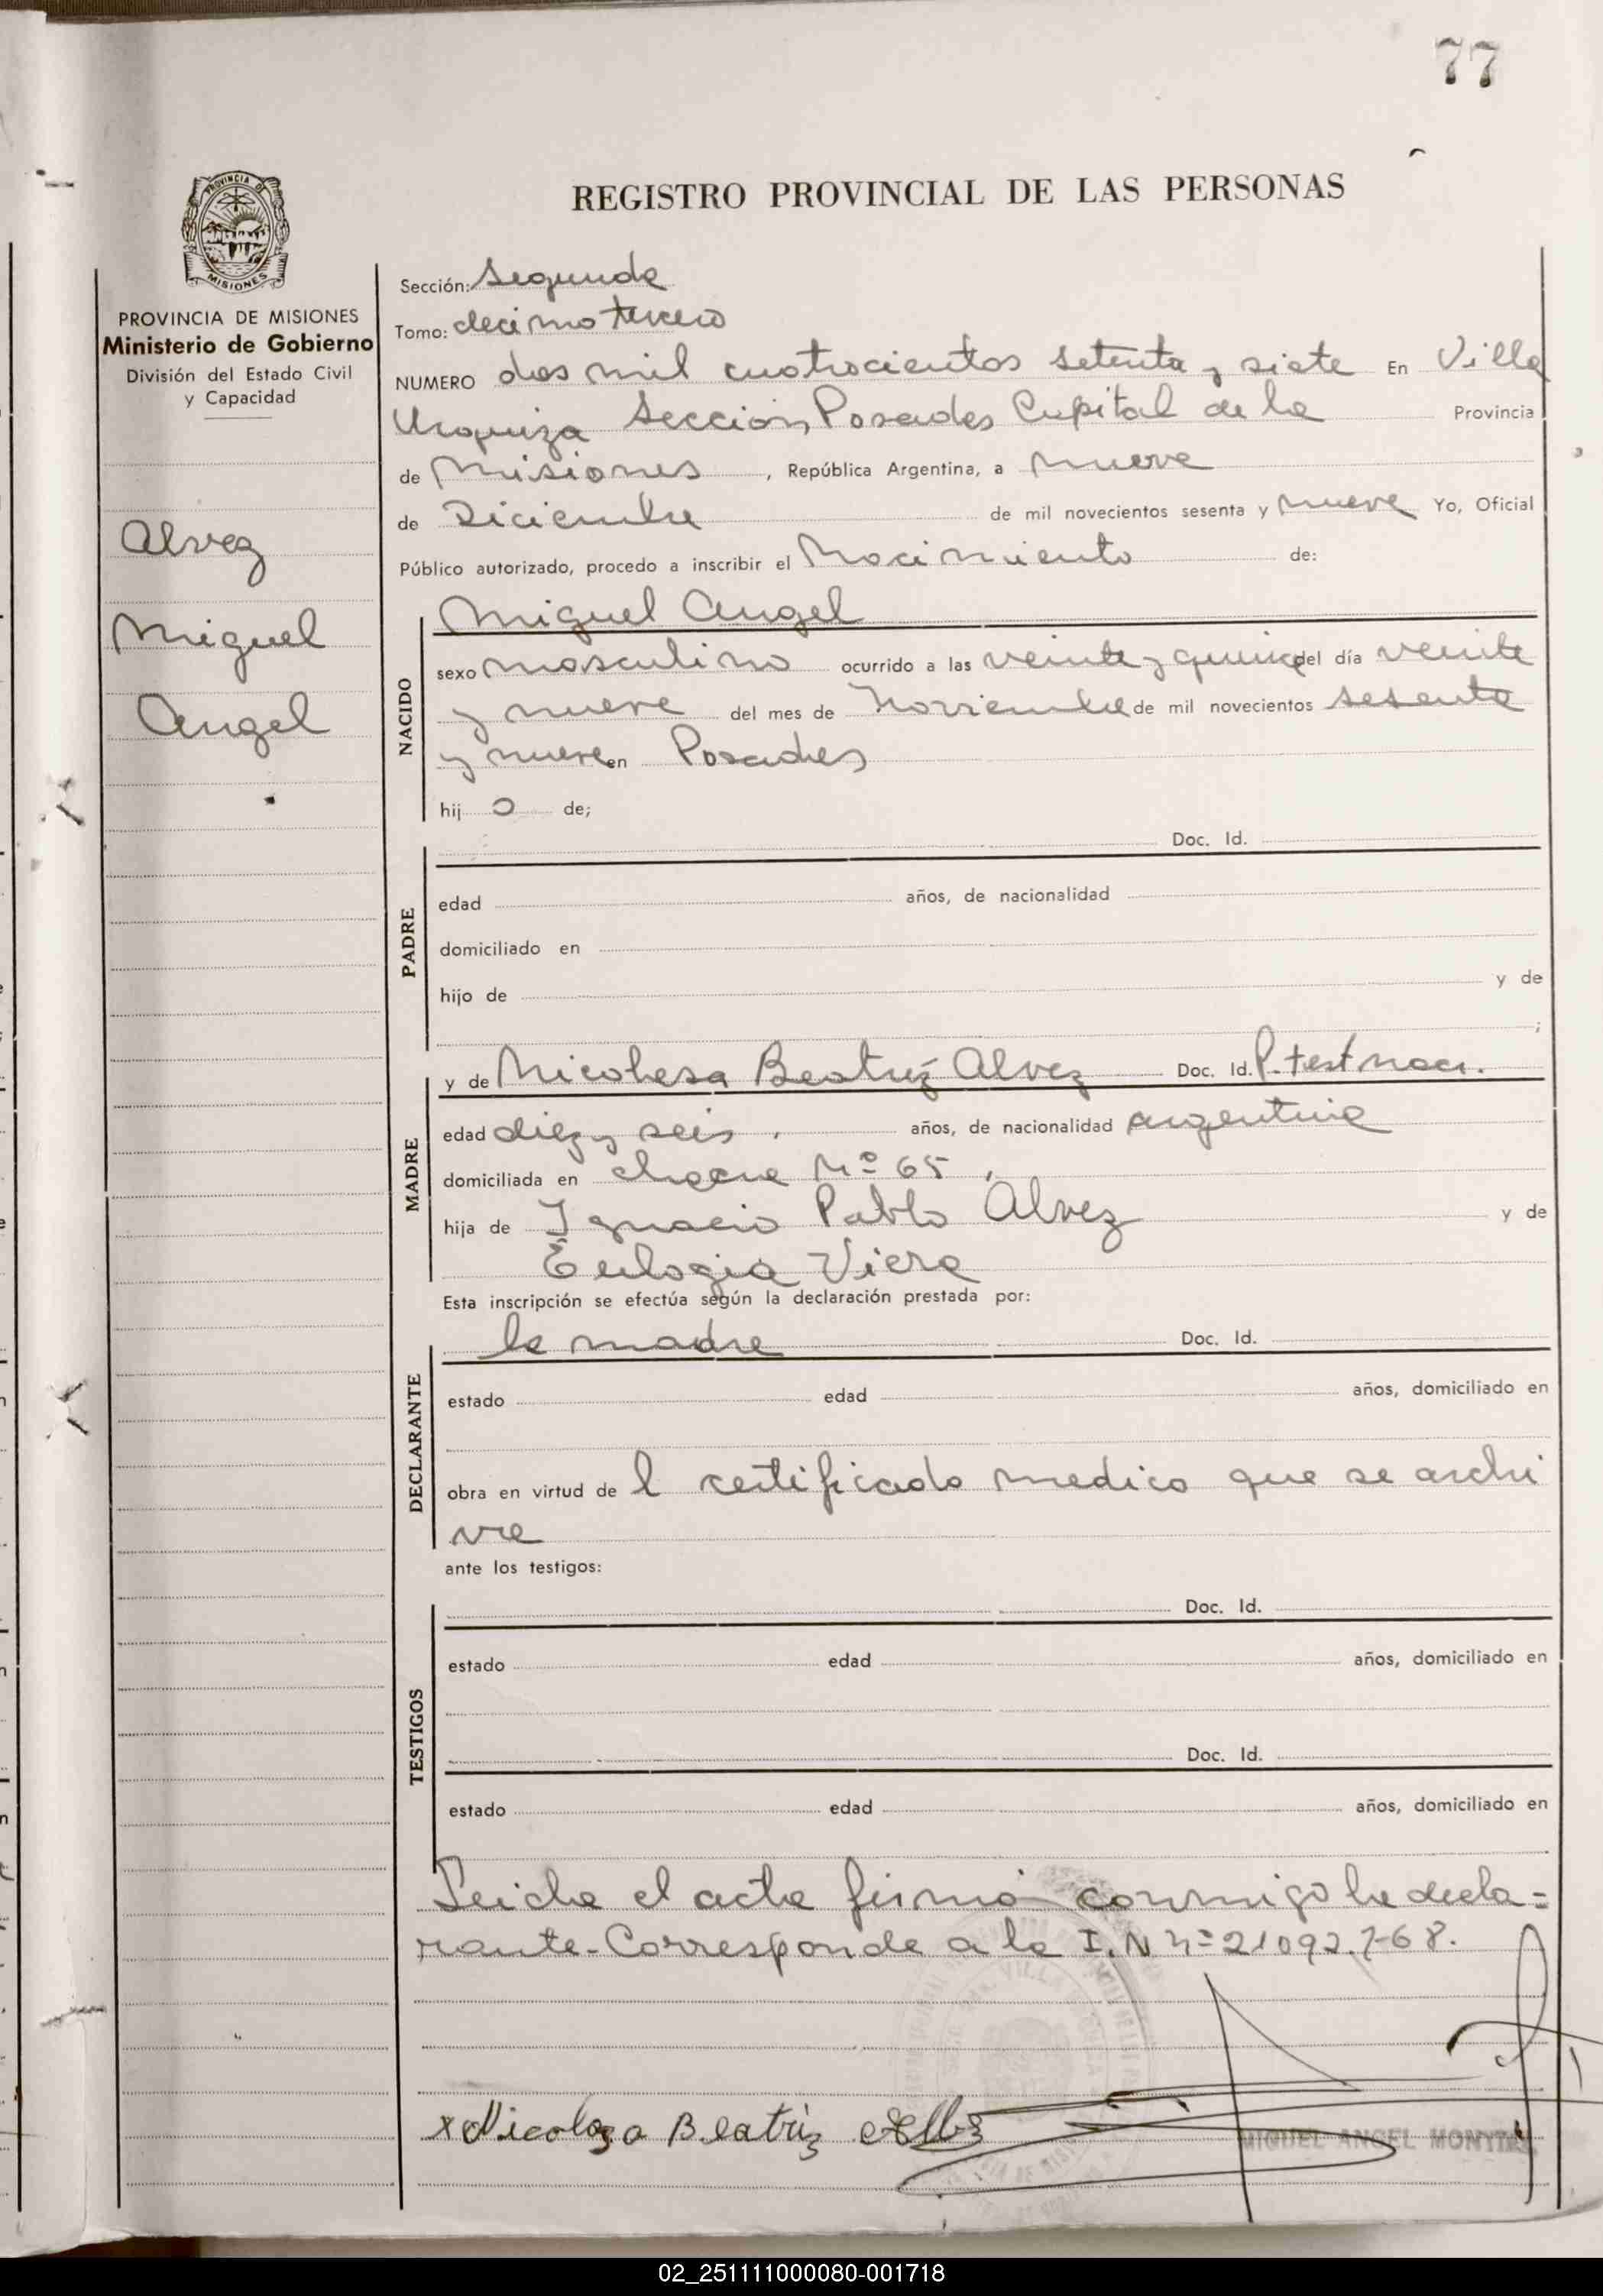 77
REGISTRO PROVINCIAL DE LAS PERSONAS
PROVINCIA DE
MISIONES
PROVINCIA DE MISIONES
Ministerio de Gobierno
División del Estado Civil
y Capacidad
Alvez
Miguel
Angel
Sección: Segunda
Tomo: decimo tercero
NUMERO dos mil cuatrocientos setenta y siete En Villa
Urquiza Sección Posadas Capital de la Provincia
de Misiones, República Argentina, a nueve
de Diciembre de mil novecientos sesenta y nueve Yo, Oficial
Público autorizado, procedo a inscribir el Nacimiento de:
NACIDO
Miguel Angel
sexo masculino ocurrido a las veinte y quince del día veinte
y nueve del mes de Noviembre de mil novecientos sesenta
y nueve en Posadas
hij o de;
PADRE
Doc. Id.
edad años, de nacionalidad
domiciliado en
hijo de y de
;
MADRE
y de Nicolasa Beatriz Alvez Doc. Id. P. test naci.
edad diez y seis. años, de nacionalidad argentina
domiciliada en chacra Nº 65,
hija de Ignacio Pablo Alvez y de
Eulogia Viera
Esta inscripción se efectúa según la declaración prestada por:
DECLARANTE
la madre Doc. Id.
estado edad años, domiciliado en
obra en virtud de l certificado medico que se archi
va
ante los testigos:
TESTIGOS
Doc. Id.
estado edad años, domiciliado en
Doc. Id.
estado edad años, domiciliado en
Leida el acta firmó conmigo la decla=
rante-Corresponde a la I. N nº 21092.768.
x Nicolaza Beatriz
MIGUEL ANGEL
02_251111000080-001718